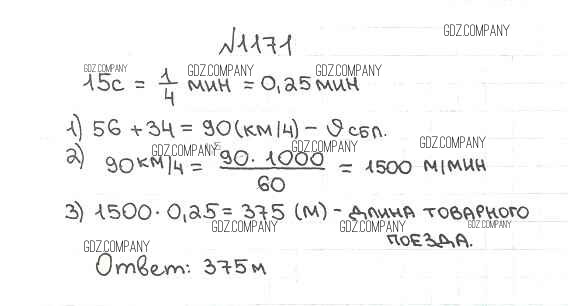 №1171
GDZ.COMPANY
GDZ.COMPANY GDZ.COMPANY GDZ.COMPANY
15с = 1/4 мин = 0,25 мин
1) 56 + 34 = 90 (км/ч) – υ сбл.
GDZ.COMPANY GDZ.COMPANY GDZ.COMPANY
2) 90 км/ч = 90 · 1000 / 60 = 1500 м/мин
3) 1500 · 0,25 = 375 (м) – длина товарного
GDZ.COMPANY GDZ.COMPANY GDZ.COMPANY
поезда.
GDZ.COMPANY
Ответ: 375 м